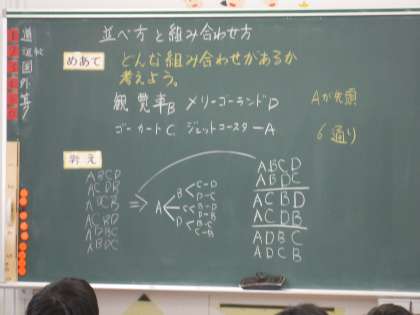 並べ方と組み合わせ方
めあて
どんな組み合わせがあるか
考えよう。
観覧車B メリーゴーランドD
ゴーカートC ジェットコースターA
Aが先頭
6通り
考え
ABCD
ACDB
ADCB
ACBD
ADBC
ABDC
⇒
A
B
C
D
C-D
D-C
B-D
D-B
B-C
C-B
ABCD
ABDC
ACBD
ACDB
ADBC
ADCB
道
国
外